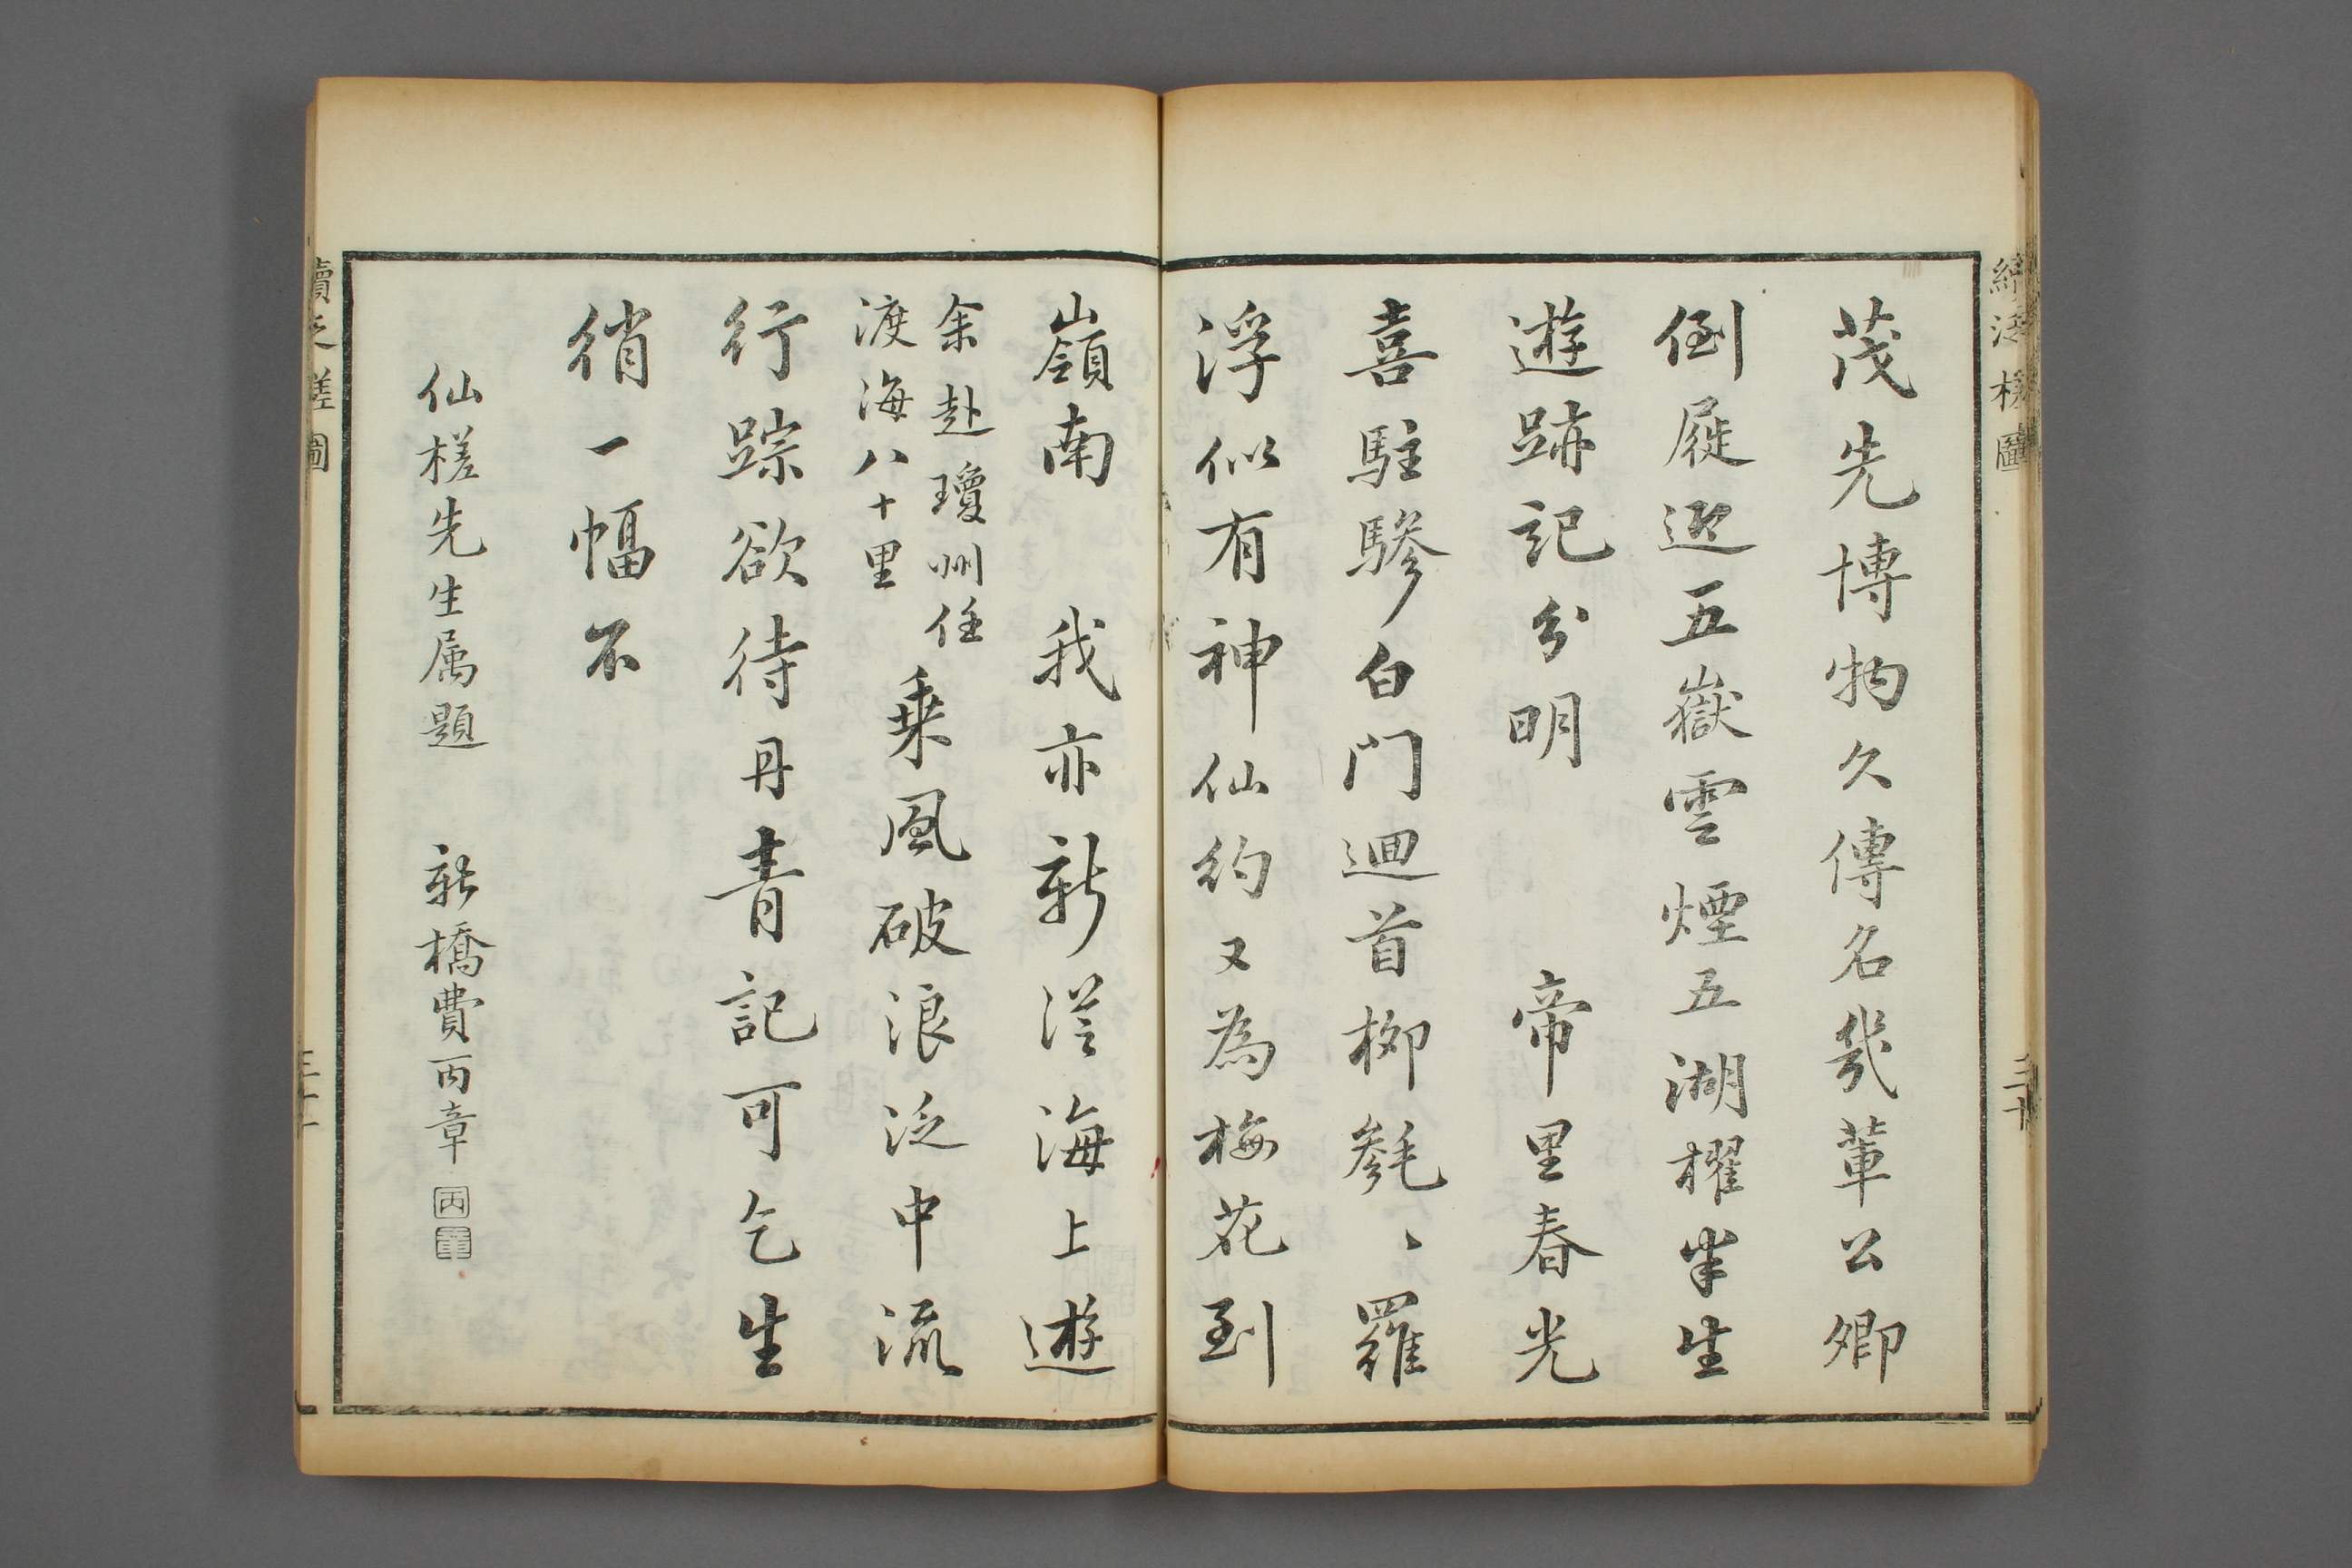 茂先博物久傳名幾輩公卿
倒屣迎五嶽雲煙五湖櫂半生
遊跡記分明　帝里春光
喜駐驂白門迴首柳毿、羅
浮似有神仙約又為梅花到
嶺南　我亦新從海上遊
余赴瓊州任
渡海八十里
乘風破浪泛中流
行踪欲待丹青記可乞生
綃一幅不
仙槎先生属題　新橋費丙章
丙
章
續泛槎圖
三十
續泛槎圖